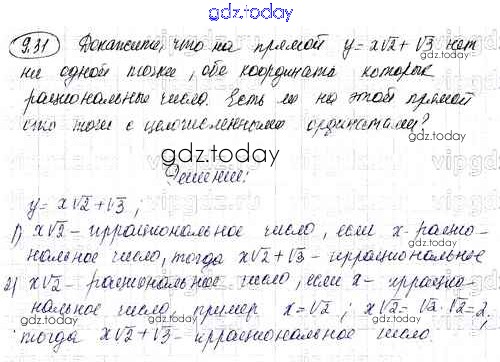 gdz.today
9.31 Докажите, что на прямой y = x√2 + √3 нет
ни одной точки, обе координата которых
рациональные число. Есть ли на этой прямой
gdz.today
Решение:
y = x√2 + √3 ;
1) x√2 - иррациональное число, если x - рацио-
нальное число, тогда x√2 + √3 - иррациональное
2) x√2 - рациональное число, если x - иррацио-
нальное число, пример x = √2 ; x√2 = √2 · √2 = 2,
тогда x√2 + √3 - иррациональное число.
gdz.today